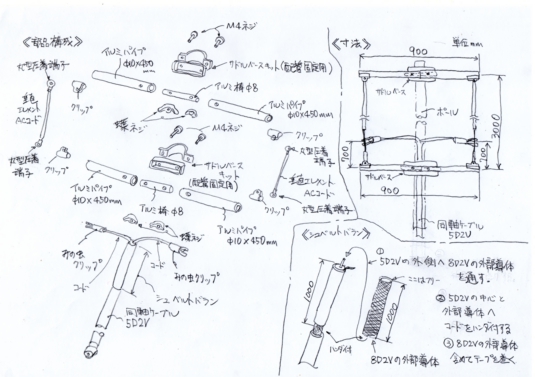 《部品構成》
M4ネジ
丸型圧着端子
アルミパイプ
Φ10×450
mm
サドルベースキット(配管固定用)
アルミ棒Φ8
アルミパイプ
Φ10×450mm
垂直
エレメント
ACコード
クリップ
蝶ネジ
M4ネジ
クリップ
丸型圧着
端子
丸型圧着
端子
クリップ
サドルベース
キット
(配管固定用)
垂直エレメント
ACコード
アルミパイプ
Φ10×450mm
アルミ棒Φ8
丸型圧着端子
クリップ
蝶ネジ
アルミパイプ
Φ10×450mm
みの虫
クリップ
コード
みの虫クリップ
コード
シュペルトバラン
同軸ケーブル
5D2V
《寸法》
単位mm
900
サドルベース
ポール
3000
700
700
サドルベース
900
同軸ケーブル
5D2V
《シュペルトバラン》
① 5D2Vの外側へ8D2Vの外部導体
を通す。
ここはフリー
1000
1000
② 5D2Vの中心と
外部導体へ
コードをハンダ付する
ハンダ付
8D2Vの外部導体
③ 8D2Vの外部導体
含めてテープを巻く